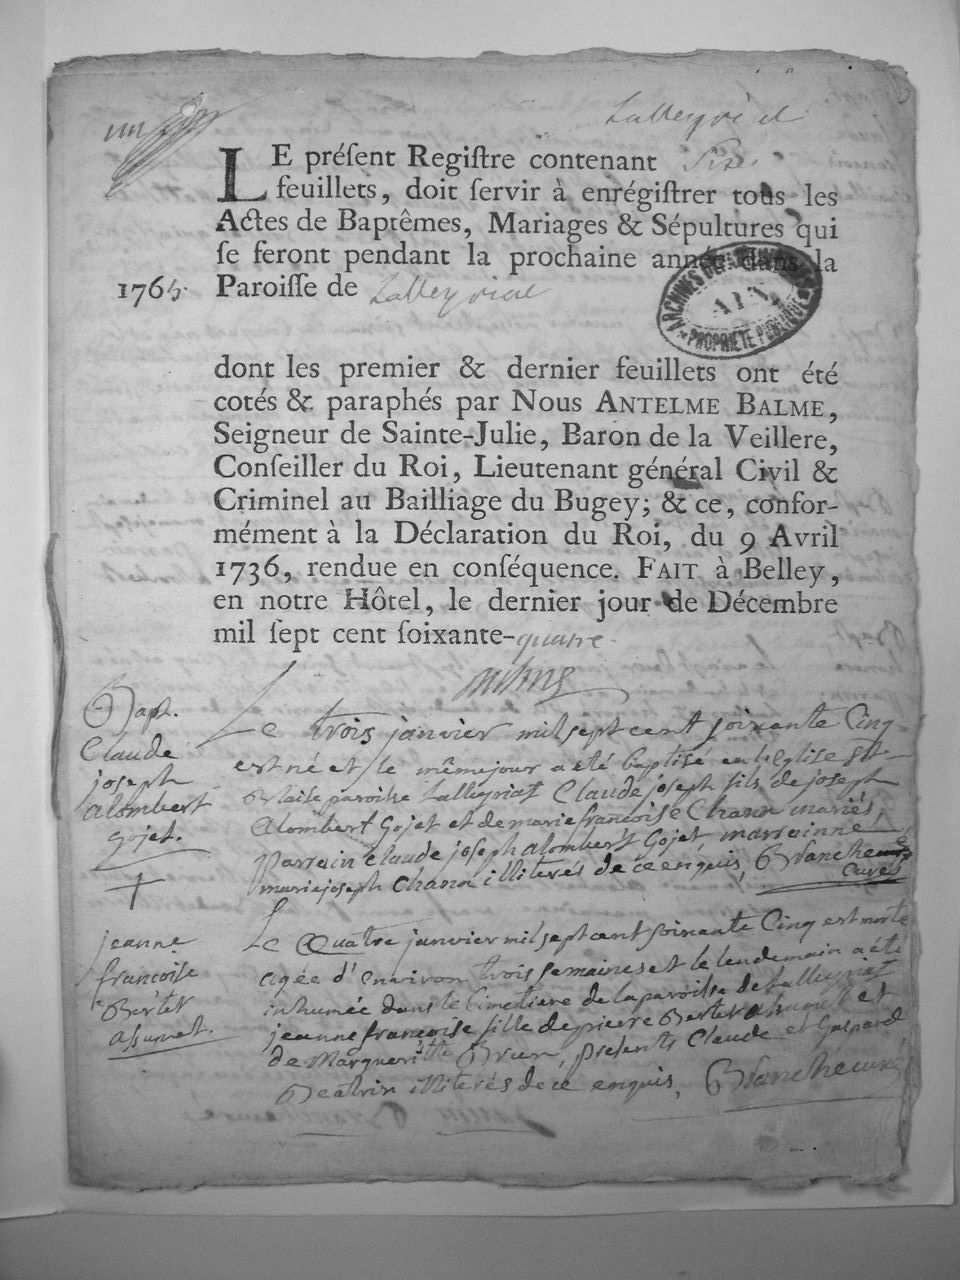 Lalleyriat
un
LE préſent Regiſtre contenant Six
feuillets, doit ſervir à enrégiſtrer tous les
Actes de Baptêmes, Mariages & Sépultures qui
ſe feront pendant la prochaine année dans la
1765. Paroiſſe de Lalleyriat
ARCHIVES DEPARTEMENTALES
AIN
PROPRIÉTÉ PUBLIQUE
dont les premier & dernier feuillets ont été
cotés & paraphés par Nous ANTELME BALME,
Seigneur de Sainte-Julie, Baron de la Veillere,
Conſeiller du Roi, Lieutenant général Civil &
Criminel au Bailliage du Bugey; & ce, confor-
mément à la Déclaration du Roi, du 9 Avril
1736, rendue en conſéquence. FAIT à Belley,
en notre Hôtel, le dernier jour de Décembre
mil ſept cent ſoixante-quatre
Bapt.
Claude
joseph
alombert
gojet.
Le trois janvier mil sept cent soixante Cinq
est né et le même jour a été baptisé en l'Eglise st
Blaise paroisse Lalleyriat Claude joseph fils de joseph
Alombert Gojet et de marie francoise Chana mariés,
Parrain Claude joseph alombert Gojet marrainne
marie joseph Chana illiterés de ce enquis, Blanche
Curé
jeanne
francoise
Berter
ahumet.
Le Quatre janvier mil sept cent soixante Cinq est morte
agée d'environ trois semaines et le lendemain a été
inhumée dans le Cimetiere de la paroisse de Lalleyriat
jeanne françoise fille de pierre Berter ahumet et
de Margueritte Brun, présents Claude et Gaspard
Beatrix illiterés de ce enquis, Blanche curé